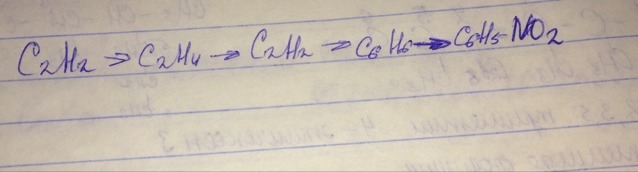 C₂H₂ → C₂H₄ → C₂H₂ → C₆H₆ → C₆H₅NO₂